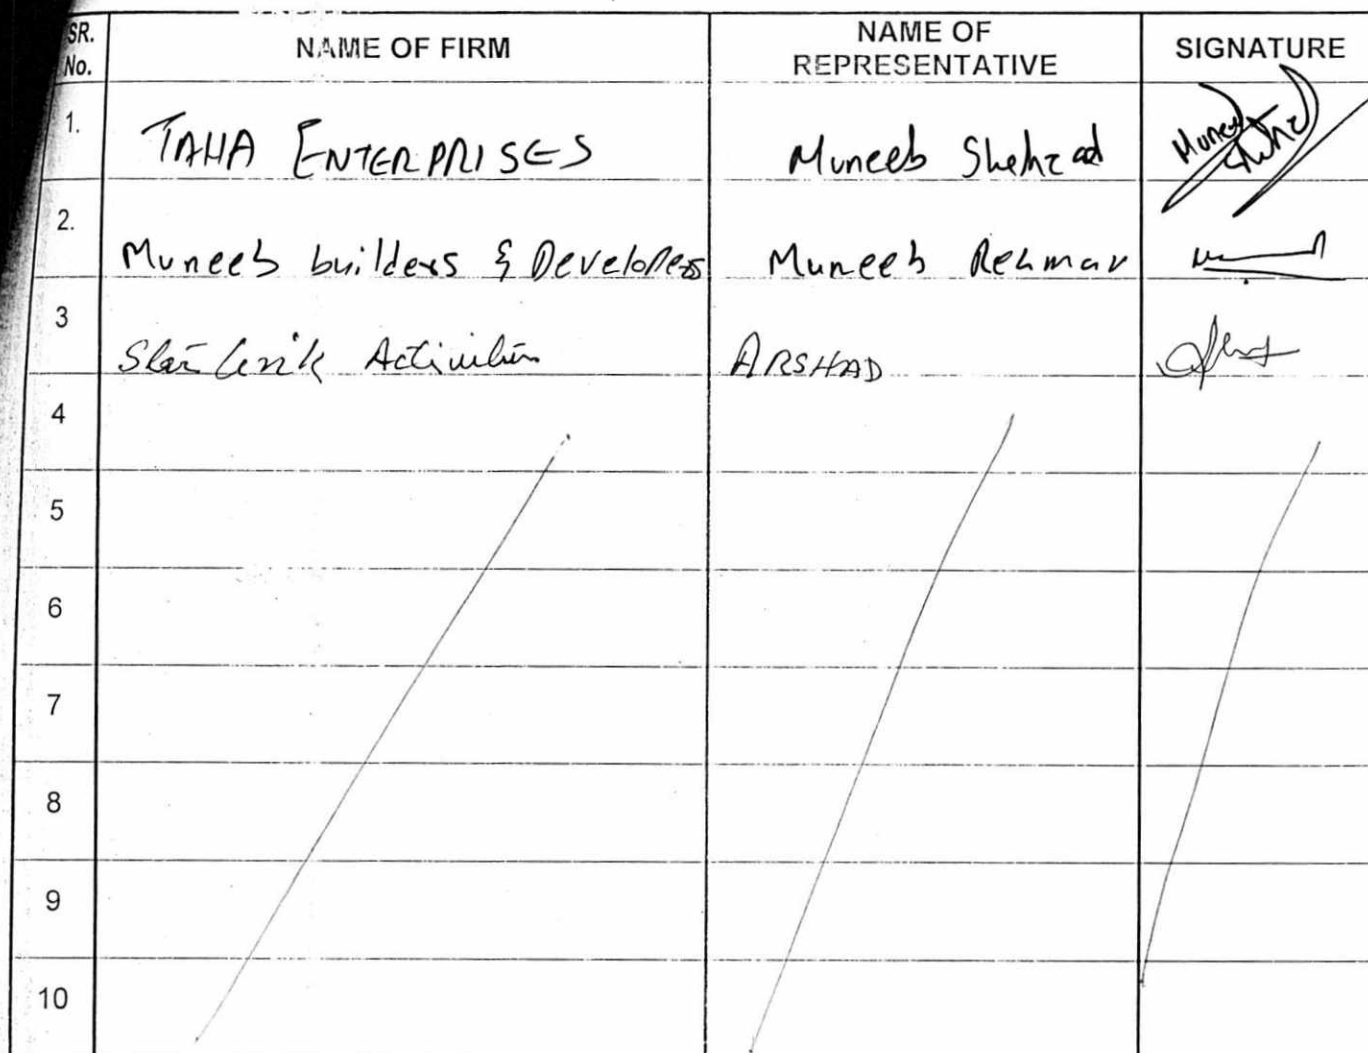 SR. No. NAME OF FIRM NAME OF REPRESENTATIVE SIGNATURE
1. TAHA ENTERPRISES Muneeb Shehzad Muneeb
2. Muneeb builders & Developers Muneeb Rehman
3 Activities ARSHAD
4
5
6
7
8
9
10